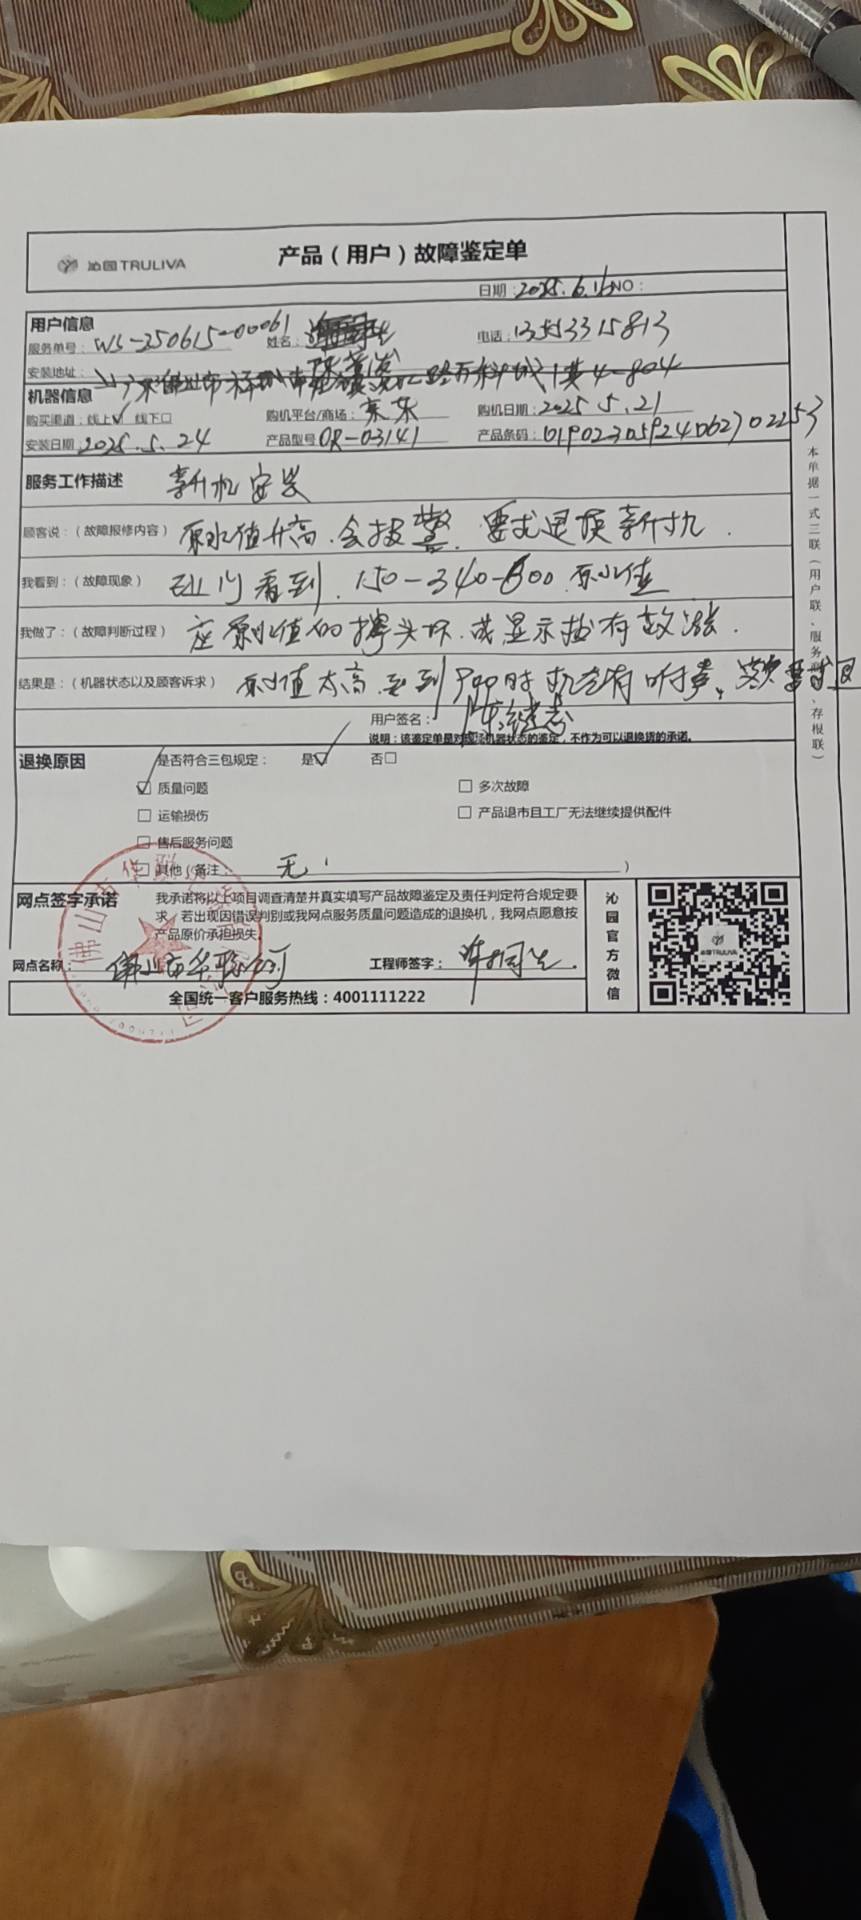 沁园TRULIVA
产品（用户）故障鉴定单
日期：2025.6.16 NO：
用户信息
服务单号：WS-250615-00061 姓名： 电话：13553315813
安装地址：广东佛山市禅城 路万科城1 4-804
机器信息
购买渠道：线上☑ 线下□ 购机平台/商场：京东 购机日期：2025.5.21
安装日期：2025.5.24 产品型号 OR-03141 产品条码：
服务工作描述 新机安装
顾客说：（故障报修内容） 原水值升高.会报警.要求退换新机.
我看到：（故障现象） 上门看到.150-340-800.原水值
我做了：（故障判断过程） 原水值的探头坏.或显示 有故障.
结果是：（机器状态以及顾客诉求） 原水值太高
用户签名：
说明：该鉴定单是对现有机器状态的鉴定，不作为可以退换货的承诺。
退换原因
是否符合三包规定： 是☑ 否□
☑ 质量问题 □ 多次故障
□ 运输损伤 □ 产品退市且工厂无法继续提供配件
□ 售后服务问题
□ 其他（备注： 无 ）
网点签字承诺
我承诺将以上项目调查清楚并真实填写产品故障鉴定及责任判定符合规定要
求，若出现因错误判别或我网点服务质量问题造成的退换机，我网点愿意按
产品原价承担损失。
网点名称：佛山市华 工程师签字：
全国统一客户服务热线：4001111222
沁园官方微信
沁园TRULIVA
本单据一式三联（用户联、服务 、存根联）
佛山市华